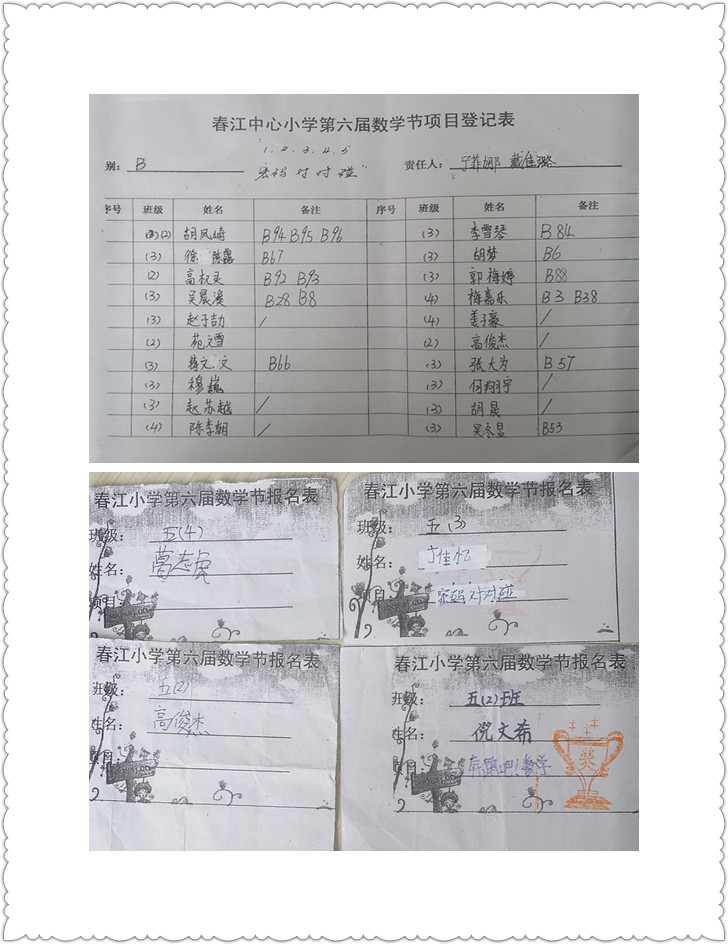 春江中心小学第六届数学节项目登记表
1.2.3.4.5
别: B 密码对对碰 责任人:
序号 班级 姓名 备注 序号 班级 姓名 备注
(2) 胡风崎 B94 B95 B96 (3) 李雪琴 B84
(3) 徐 陈露 B67 (3) 胡梦 B6
(2) 高 灵 B92 B93 (3) 郭梅婷 B88
(3) 吴晨溪 B28 B8 (4) 梅嘉乐 B3 B38
(3) 赵子劼 / (4) 姜子豪 /
(2) 苑文雪 (2) 高俊杰 /
(3) 文 B66 (3) 张大为 B57
(3) 穆巍 (3) 何翔宇 /
(3) 赵苏越 / (3) 胡晨 /
(4) 陈李朝 / (3) 吴 B53
春江小学第六届数学节报名表
班级: 五(4)
姓名: 葛志虎
项目:
春江小学第六届数学节报名表
班级: 五(3)
姓名: 佳忆
项目: 密码对对碰
春江小学第六届数学节报名表
班级: 五(2)
姓名: 高俊杰
项目:
春江小学第六届数学节报名表
班级: 五(2)班
姓名: 倪文希
项目: 奔跑吧!数学
奖